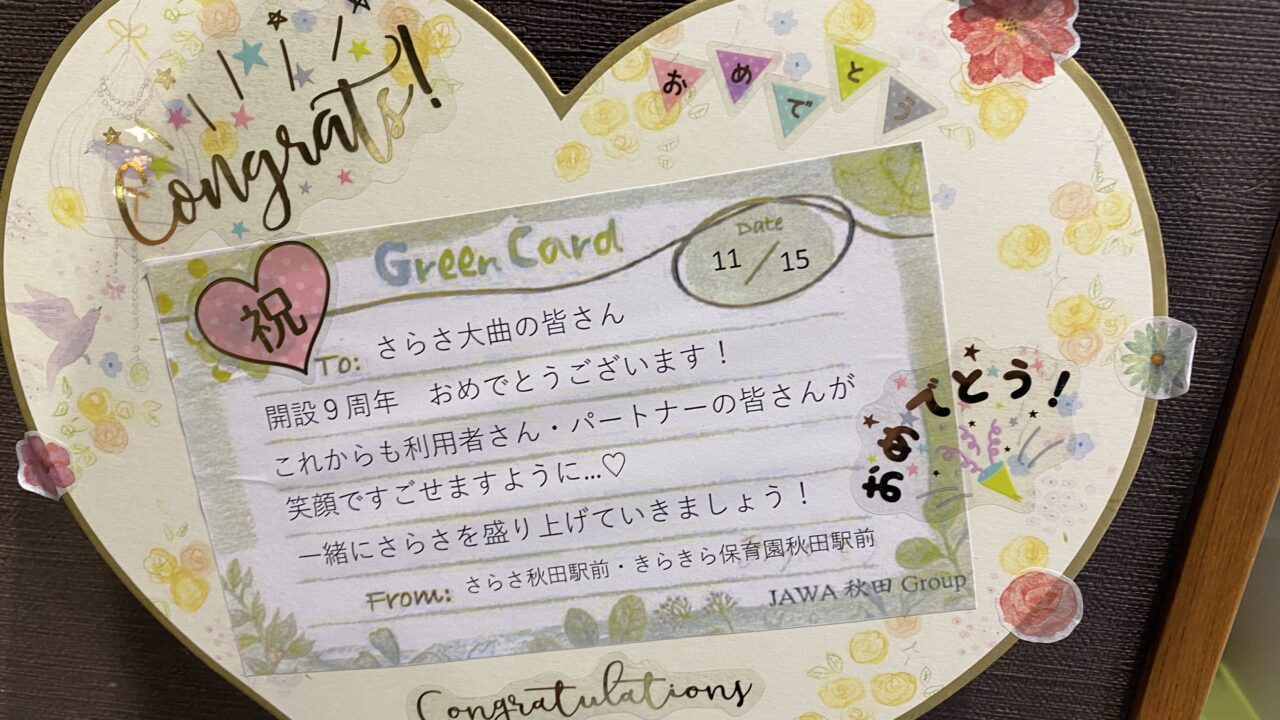 Congrats!
おめでとう
Green Card
Date
11/15
祝
To: さらさ大曲の皆さん
開設9周年 おめでとうございます！
これからも利用者さん・パートナーの皆さんが
笑顔ですごせますように…♡
一緒にさらさを盛り上げていきましょう！
From: さらさ秋田駅前・きらきら保育園秋田駅前
JAWA 秋田 Group
おめでとう！
Congratulations